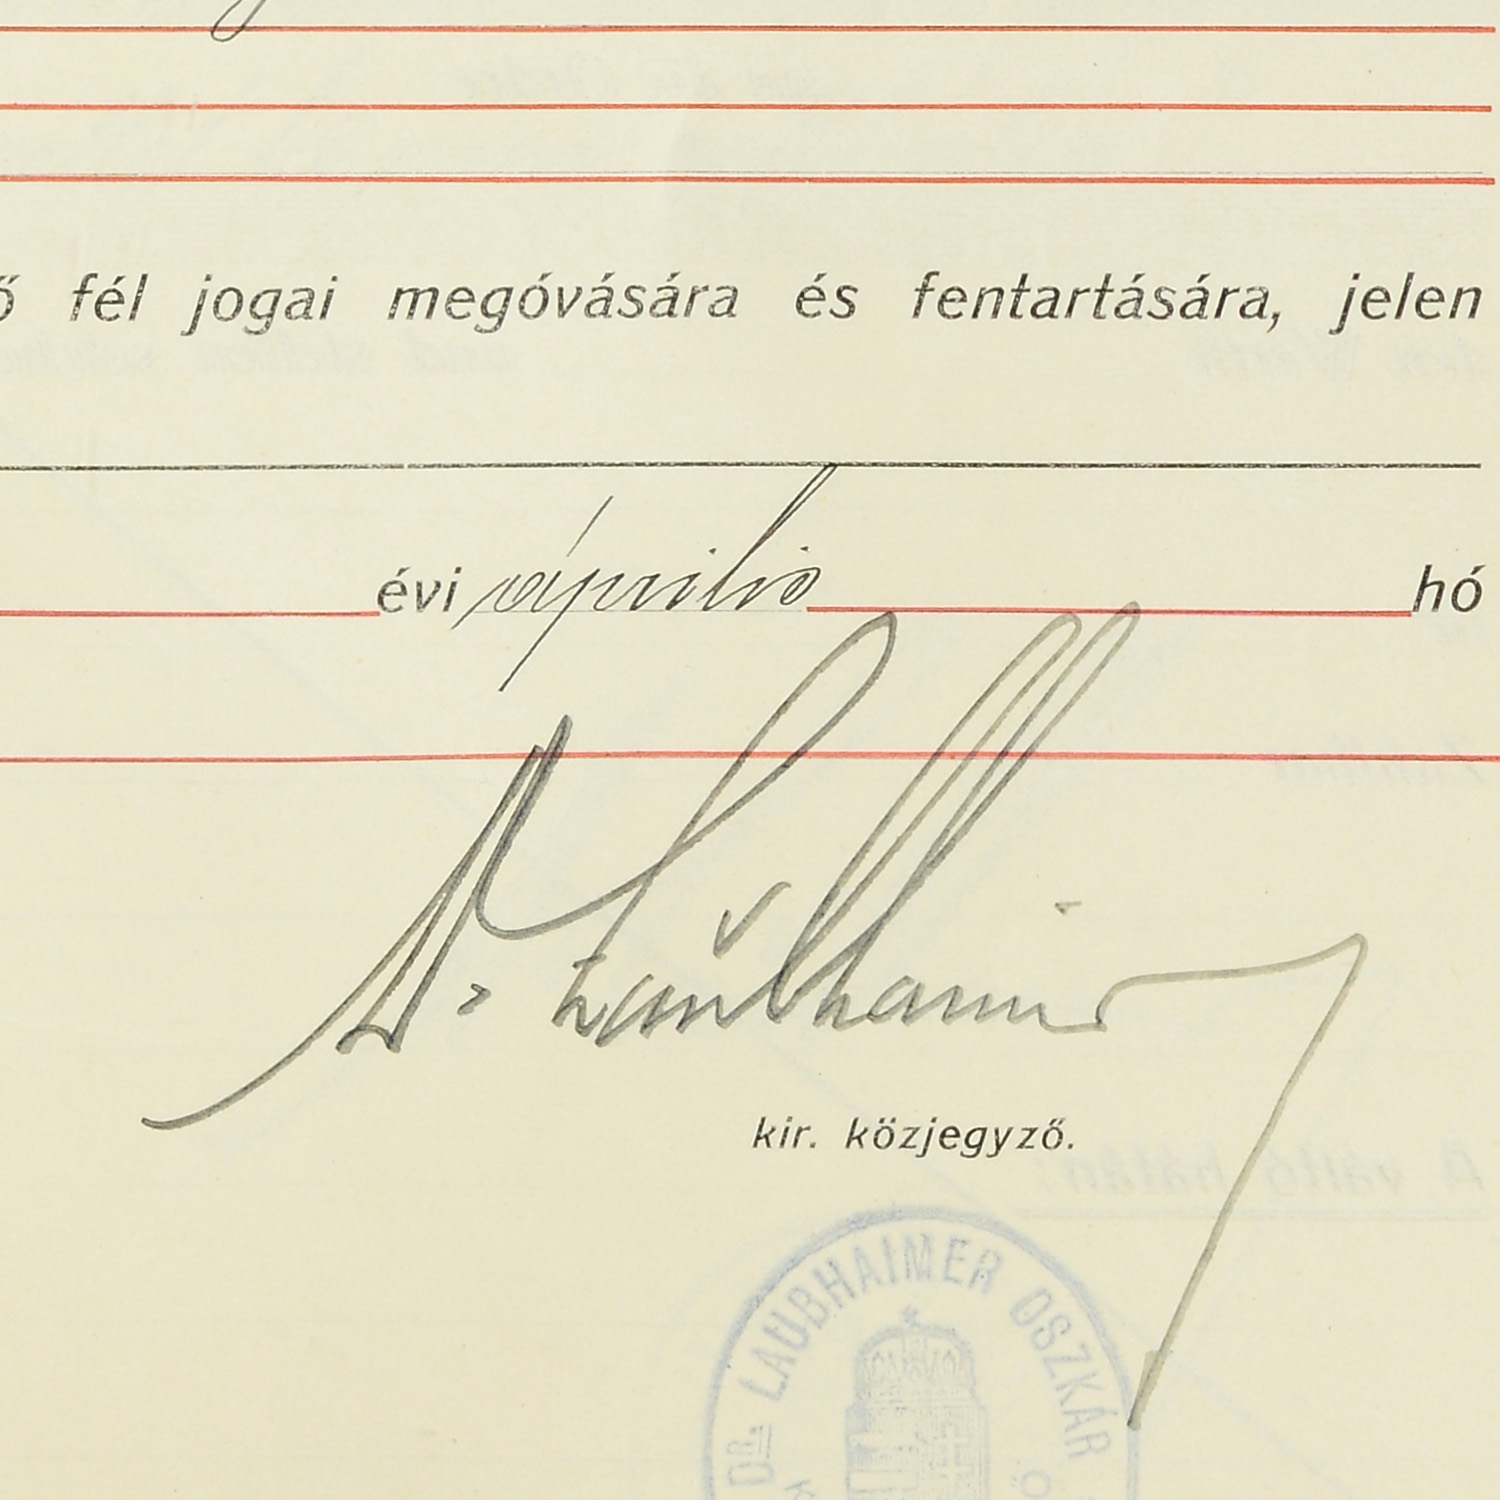 ő fél jogai megóvására és fentartására, jelen
évi április hó
Dr. Laubhaimer
kir. közjegyző.
DR. LAUBHAIMER OSZKÁR